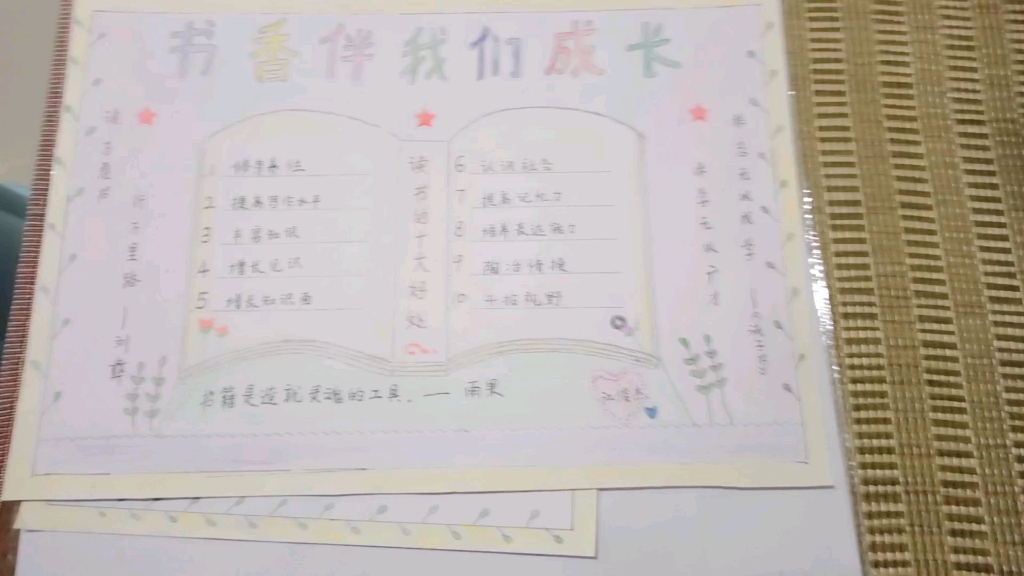 书香伴我们成长
读万卷书
行万里路
—刘彝
1 修身养性
2 提高写作水平
3 丰富知识
4 增长见识
5 增长知识面
读书的十大好处
6 认识社会
7 提高记忆力
8 培养表达能力
9 陶冶情操
10 开拓视野
非学无以广才
书籍是造就灵魂的工具.—雨果